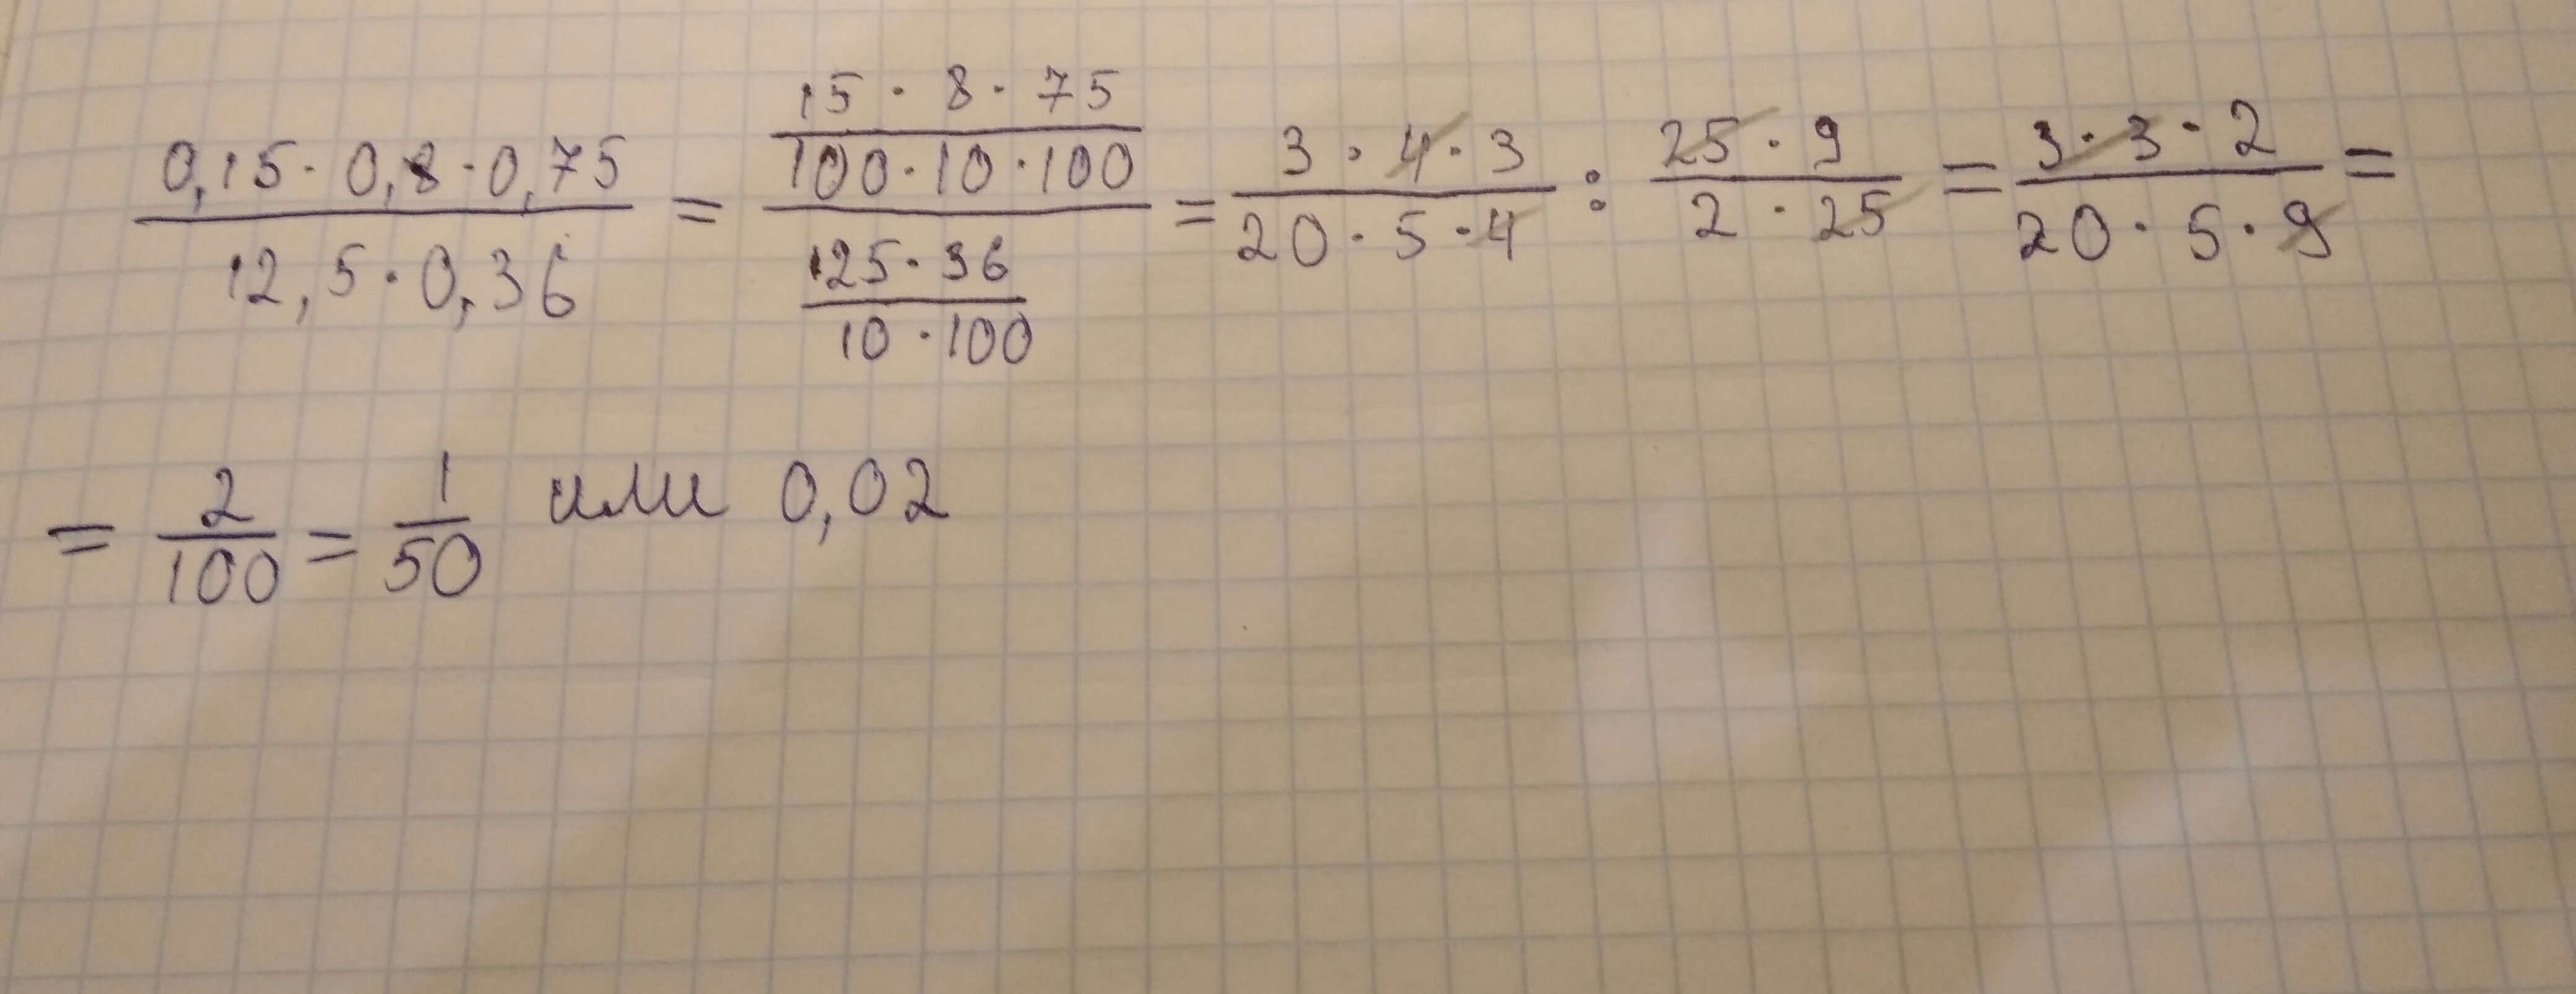 (0,15 · 0,8 · 0,75)/(12,5 · 0,36) = ((15 · 8 · 75)/(100 · 10 · 100))/((125 · 36)/(10 · 100)) = (3 · 4 · 3)/(20 · 5 · 4) : (25 · 9)/(2 · 25) = (3 · 3 · 2)/(20 · 5 · 9) =
= 2/100 = 1/50 или 0,02